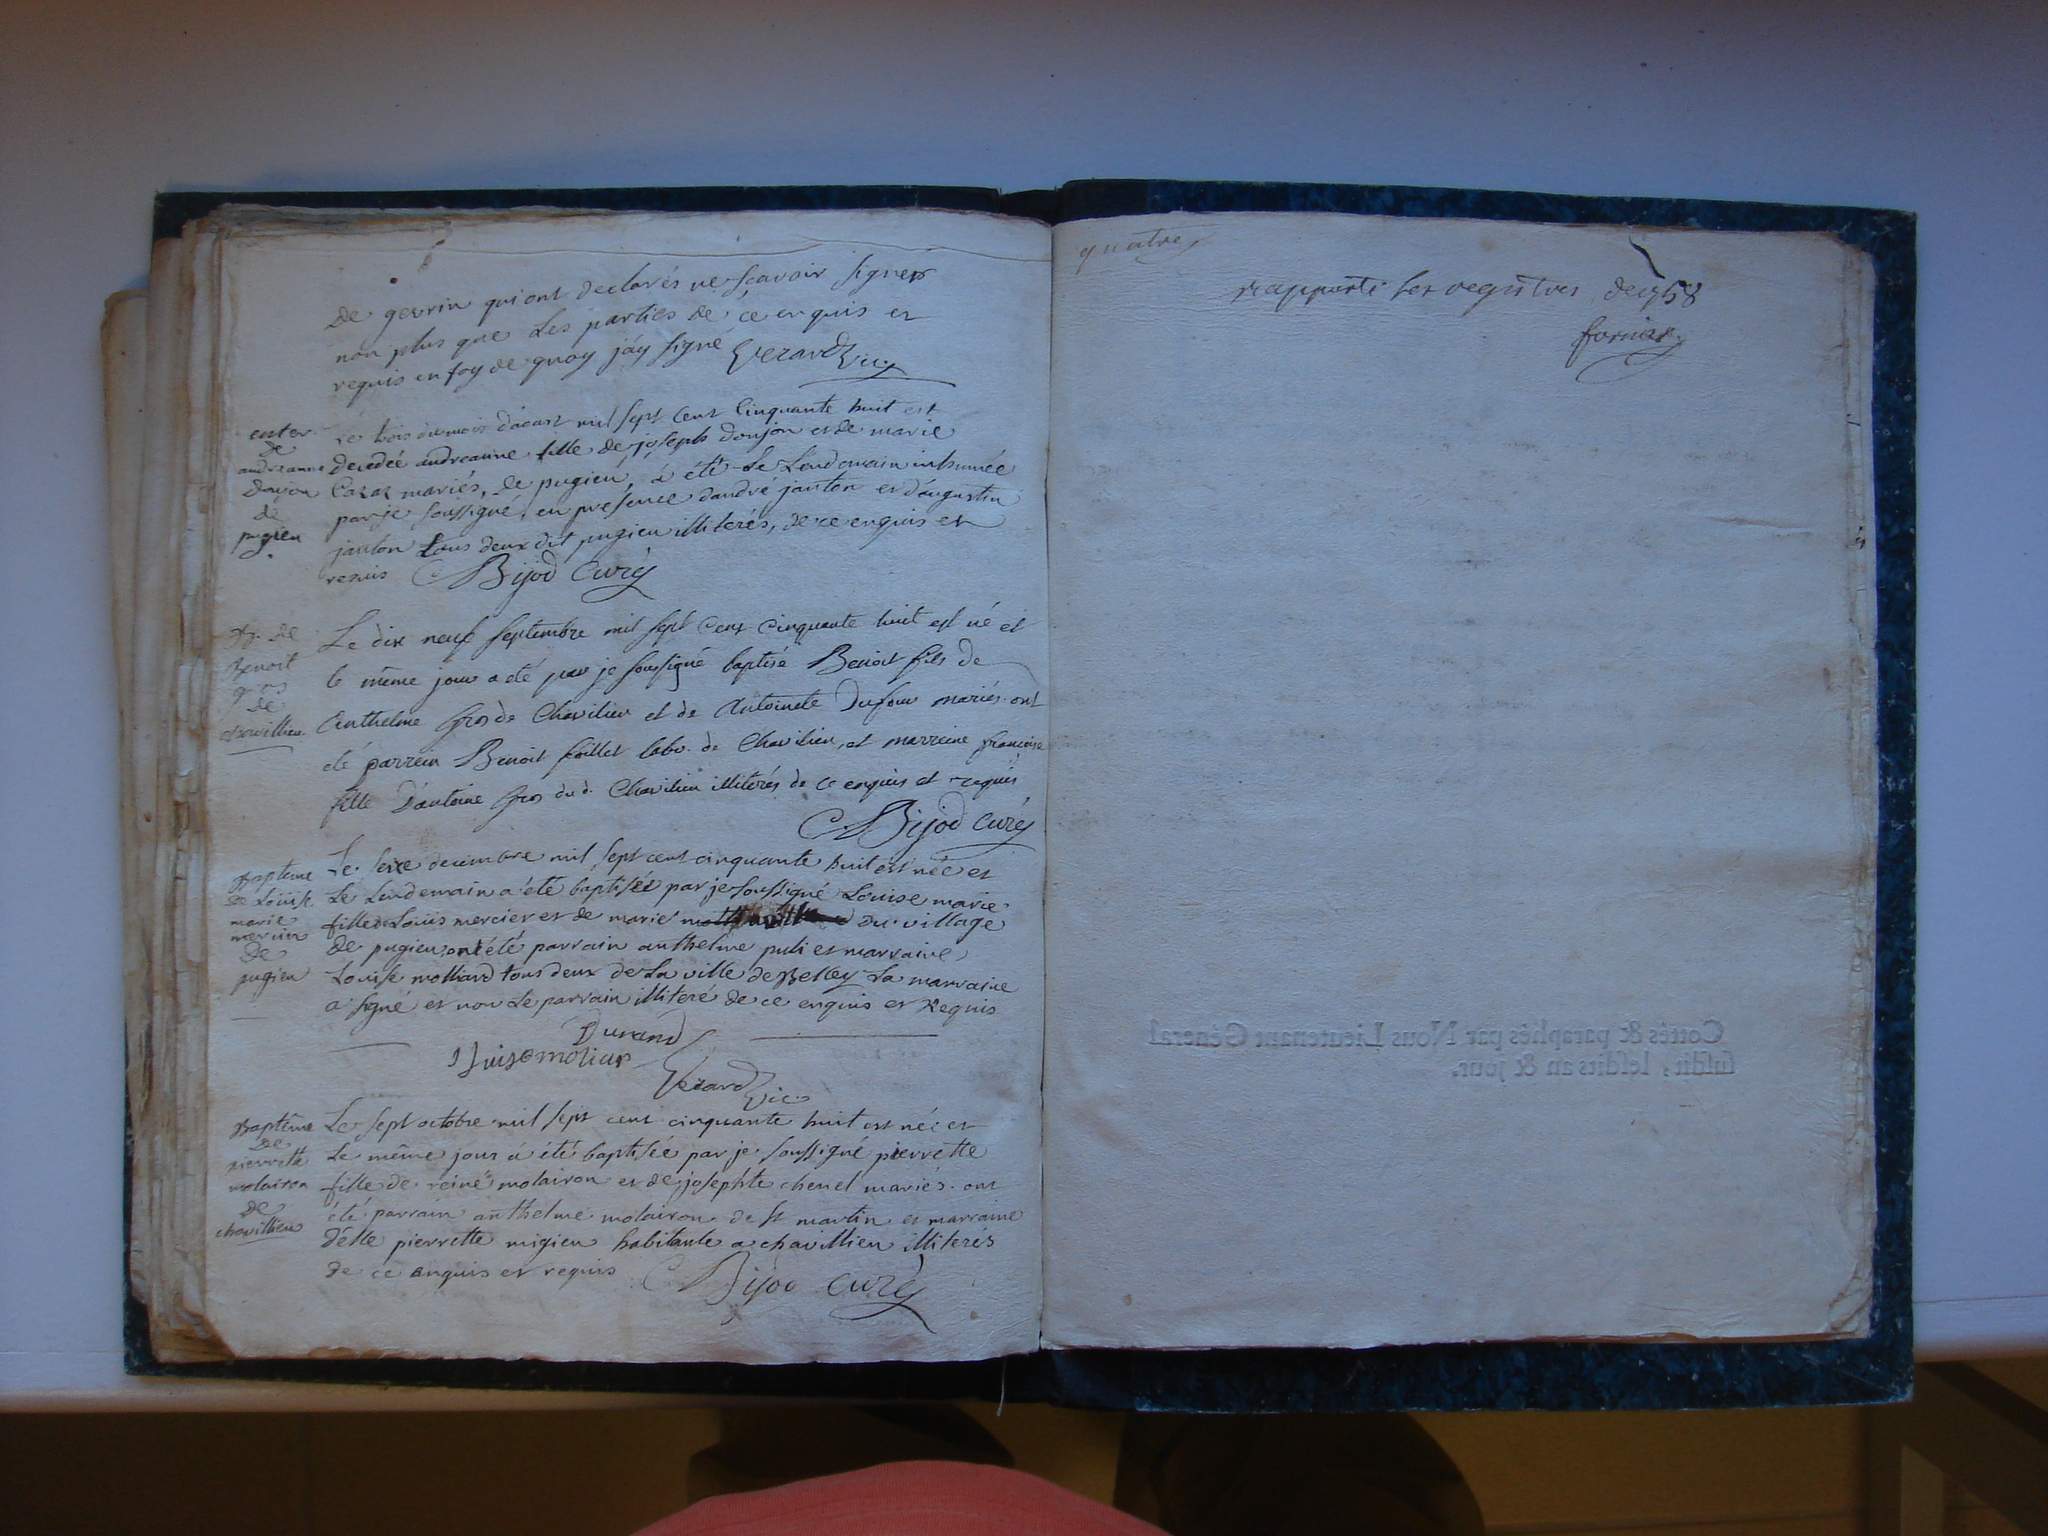 de gevrin qui ont declarés ne scavoir signer
non plus que Les parties de ce enquis et
requis en foy de quoy j'ay signé Gerard Vic
enter
de
andréanne
donjon
de
pugieu
le trois du mois d'aoust mil sept cent Cinquante huit est
decedeé andréanne fille de joseph donjon et de marie
mariés, de pugieu, à été Le Lendemain inhumée
par je soussigné, en présence d'andré janton et d'augustin
janton tous deux dit pugieu illiterés, de ce enquis et
requis Bijod Curé
Bp. de
Benoit
gros
de
chavillieu
Le dix neuf septembre mil sept cent cinquante huit est né et
le même jour a été par je soussigné baptisé Benoit fils de
Anthelme gros de Chavilieu et de Antoinete Dufour mariés ont
été parrein Benoit labr. de Chavilieu, et marreine françoise
fille D'antoine gros dud. Chavilieu illiterés de ce enquis et requis
Bijod Curé
Baptême
de Louise
marie
mercier
de
pugieu
Le seixe decembre mil sept cent cinquante huit est née et
Le Lendemain a été baptisée par je soussigné Louise marie
fille de Louis mercier et de marie du village
de pugieu, ont été parrain anthelme puli et marraine
Louise molliard tous deux de La ville de Belley La marraine
a signé et non Le parrain illiteré de ce enquis et Requis
Durand
Louise moliar
Gerard Vic.
Baptême
de
pierrette
molairon
de
chavillieu
Le sept octobre mil sept cent cinquante huit est née et
Le même jour a été baptisée par je soussigné pierrette
fille de reiné molairon et de josephte chenel mariés. ont
été parrain anthelme molairon de st martin et marraine
d'elle pierrette migieu habitante a chavillieu illiterés
de ce enquis et requis Bijod curé
quatre
rapporté les registres de 1758
fornier
Cottés & paraphés par Nous Lieutenant Géneral
susdit, lesdits an & jour.